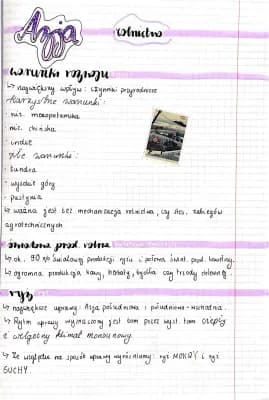 Azja
rolnictwo
warunki rozwoju
↳ największy wpływ: czynniki przyrodnicze
korzystne warunki:
· niz. mezopotamska
· niz. chińska
· indie
złe warunki:
· tundra
· wysokie góry
· pustynia
↳ ważna jest też mechanizacja rolnictwa, czy ilość zabiegów
agrotechnicznych
światowa prod. rolna
↳ ok. 90% światowej produkcji ryżu i połowa świat. prod. bawełny.
↳ ogromna produkcja kawy, herbaty, bydła czy trzody chlewnej
ryż
↳ największe uprawy: Azja południowa i południowo-wschodnia.
↳ Rytm uprawy wyznaczony jest tam przez wyst. tam ciepły
i wilgotny klimat monsunowy.
↳ Ze względu na sposób uprawy wyróżniamy: ryż MOKRY i ryż
SUCHY.